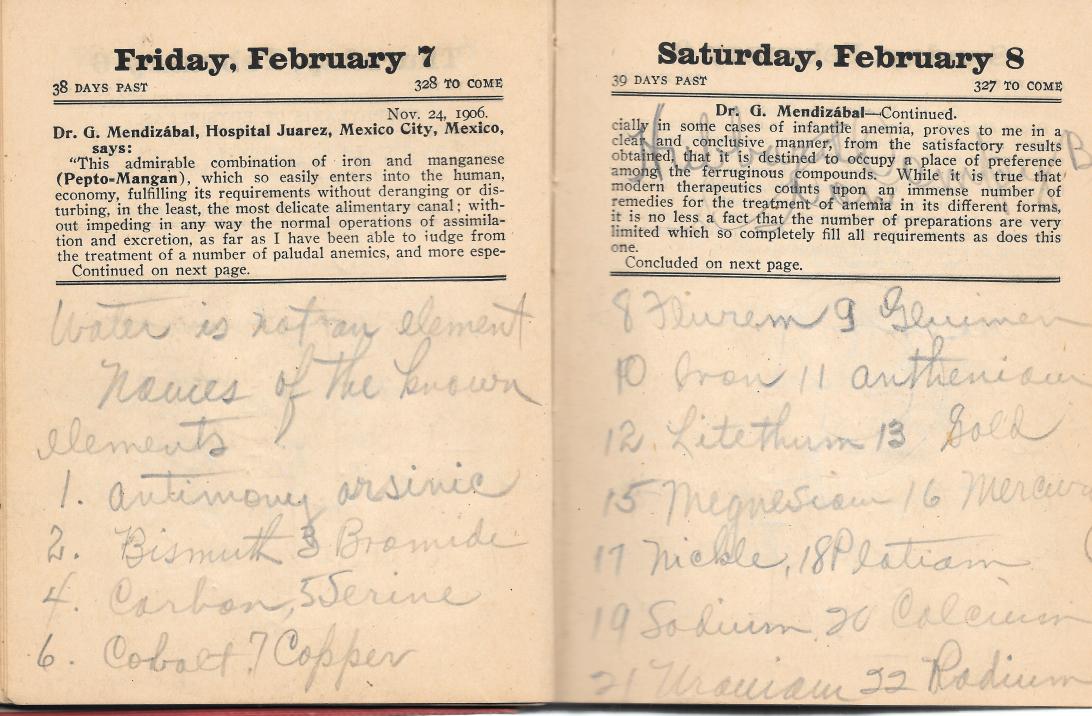 Friday, February 7
38 DAYS PAST 328 TO COME
Nov. 24, 1906.
Dr. G. Mendizábal, Hospital Juarez, Mexico City, Mexico,
says:
"This admirable combination of iron and manganese
(Pepto-Mangan), which so easily enters into the human,
economy, fulfilling its requirements without deranging or dis-
turbing, in the least, the most delicate alimentary canal; with-
out impeding in any way the normal operations of assimila-
tion and excretion, as far as I have been able to judge from
the treatment of a number of paludal anemics, and more espe-
Continued on next page.
Water is not an element
Names of the known
elements
1. antimony arsinic
2. Bismuth 3 Bromide
4. Carbon, 5 Serine
6. Cobalt. 7 Copper
Saturday, February 8
39 DAYS PAST 327 TO COME
Dr. G. Mendizábal—Continued.
cially in some cases of infantile anemia, proves to me in a
clear and conclusive manner, from the satisfactory results
obtained, that it is destined to occupy a place of preference
among the ferruginous compounds. While it is true that
modern therapeutics counts upon an immense number of
remedies for the treatment of anemia in its different forms,
it is no less a fact that the number of preparations are very
limited which so completely fill all requirements as does this
one.
Concluded on next page.
8 Flurem 9
10 Iron 11
12 Litethum 13 Gold
15 Megnesiam 16 Mercury
17 Nickle, 18 Platiam
19 Sodium 20 Calcium
21 Uraniam 22 Radium